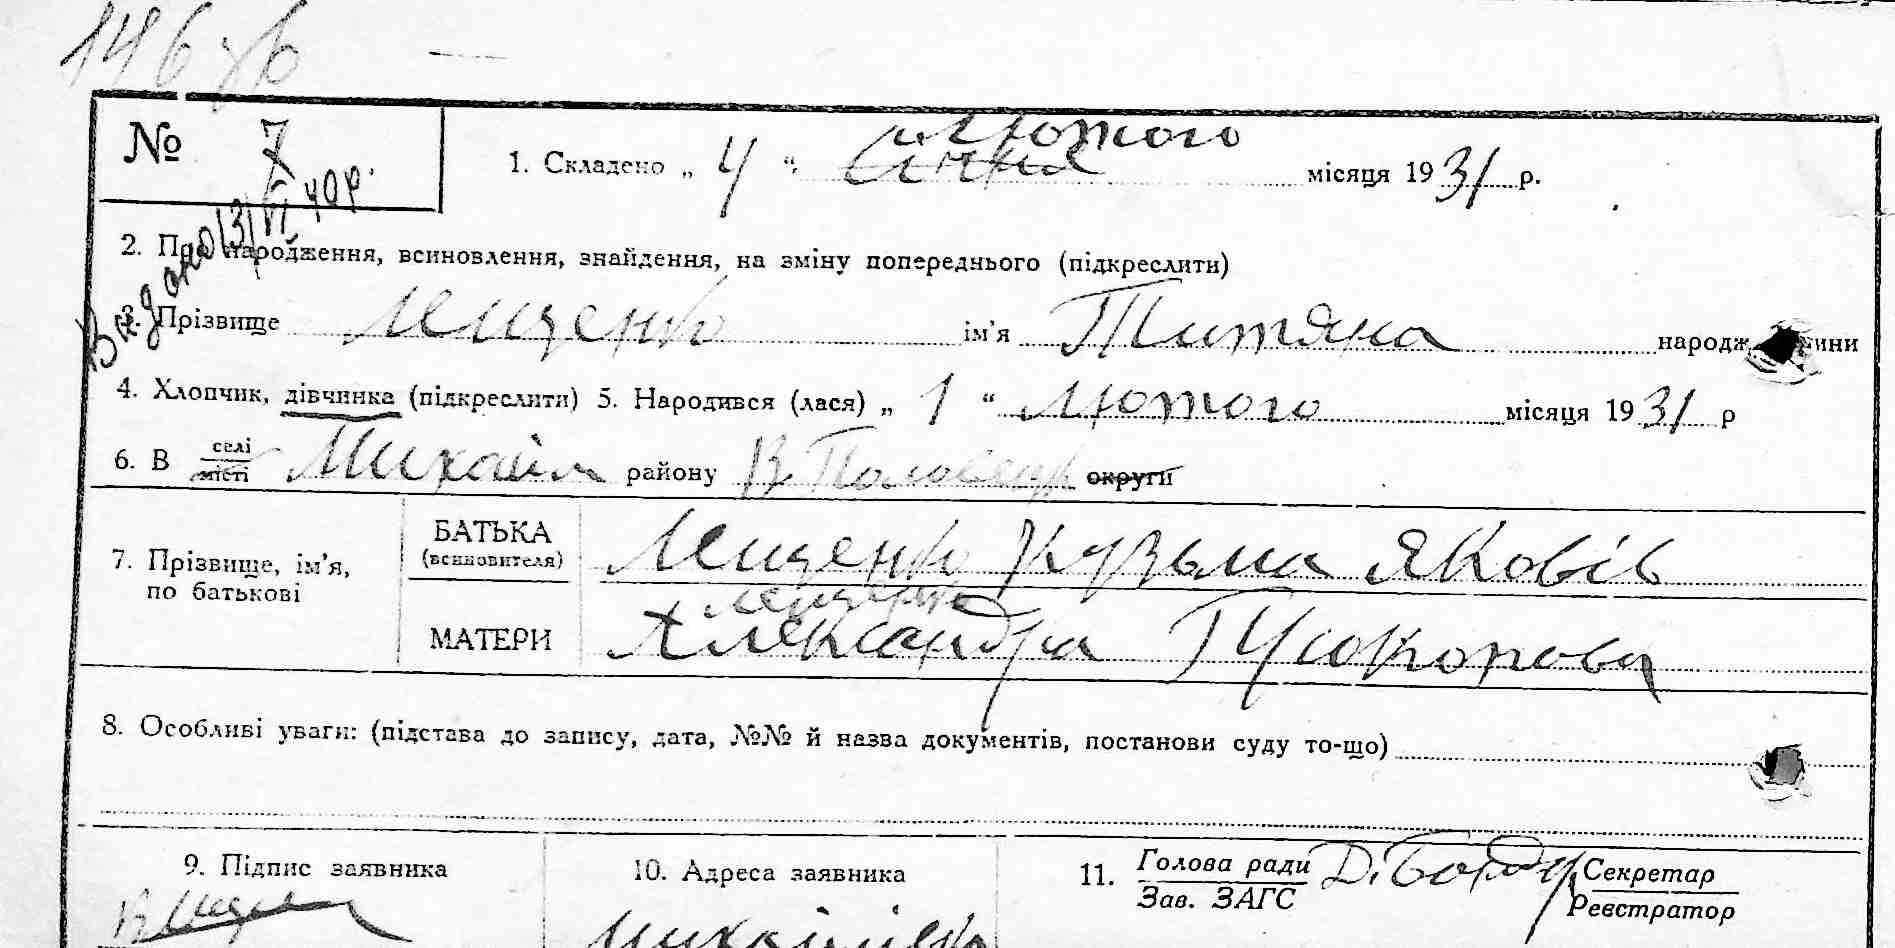 № 7
1. Складено „ 4 “ січня лютого місяця 1931 р.
Видано 13/VI 40р.
2. Про народження, всиновлення, знайдення, на зміну попереднього (підкреслити)
3. Прізвище Мищенко ім’я Титяна народж ини
4. Хлопчик, дівчинка (підкреслити) 5. Народився (лася) „ 1 “ лютого місяця 1931 р
6. В селі місті Михайл району В Половецк округи
7. Прізвище, ім’я, по батькові
БАТЬКА (всиновителя) Мищенко Кузьма Яковів
Мищенко
МАТЕРИ Александра
8. Особливі уваги: (підстава до запису, дата, №№ й назва документів, постанови суду то-що)
9. Підпис заявника
10. Адреса заявника
11. Голова ради Зав. ЗАГС
Секретар Реєстратор